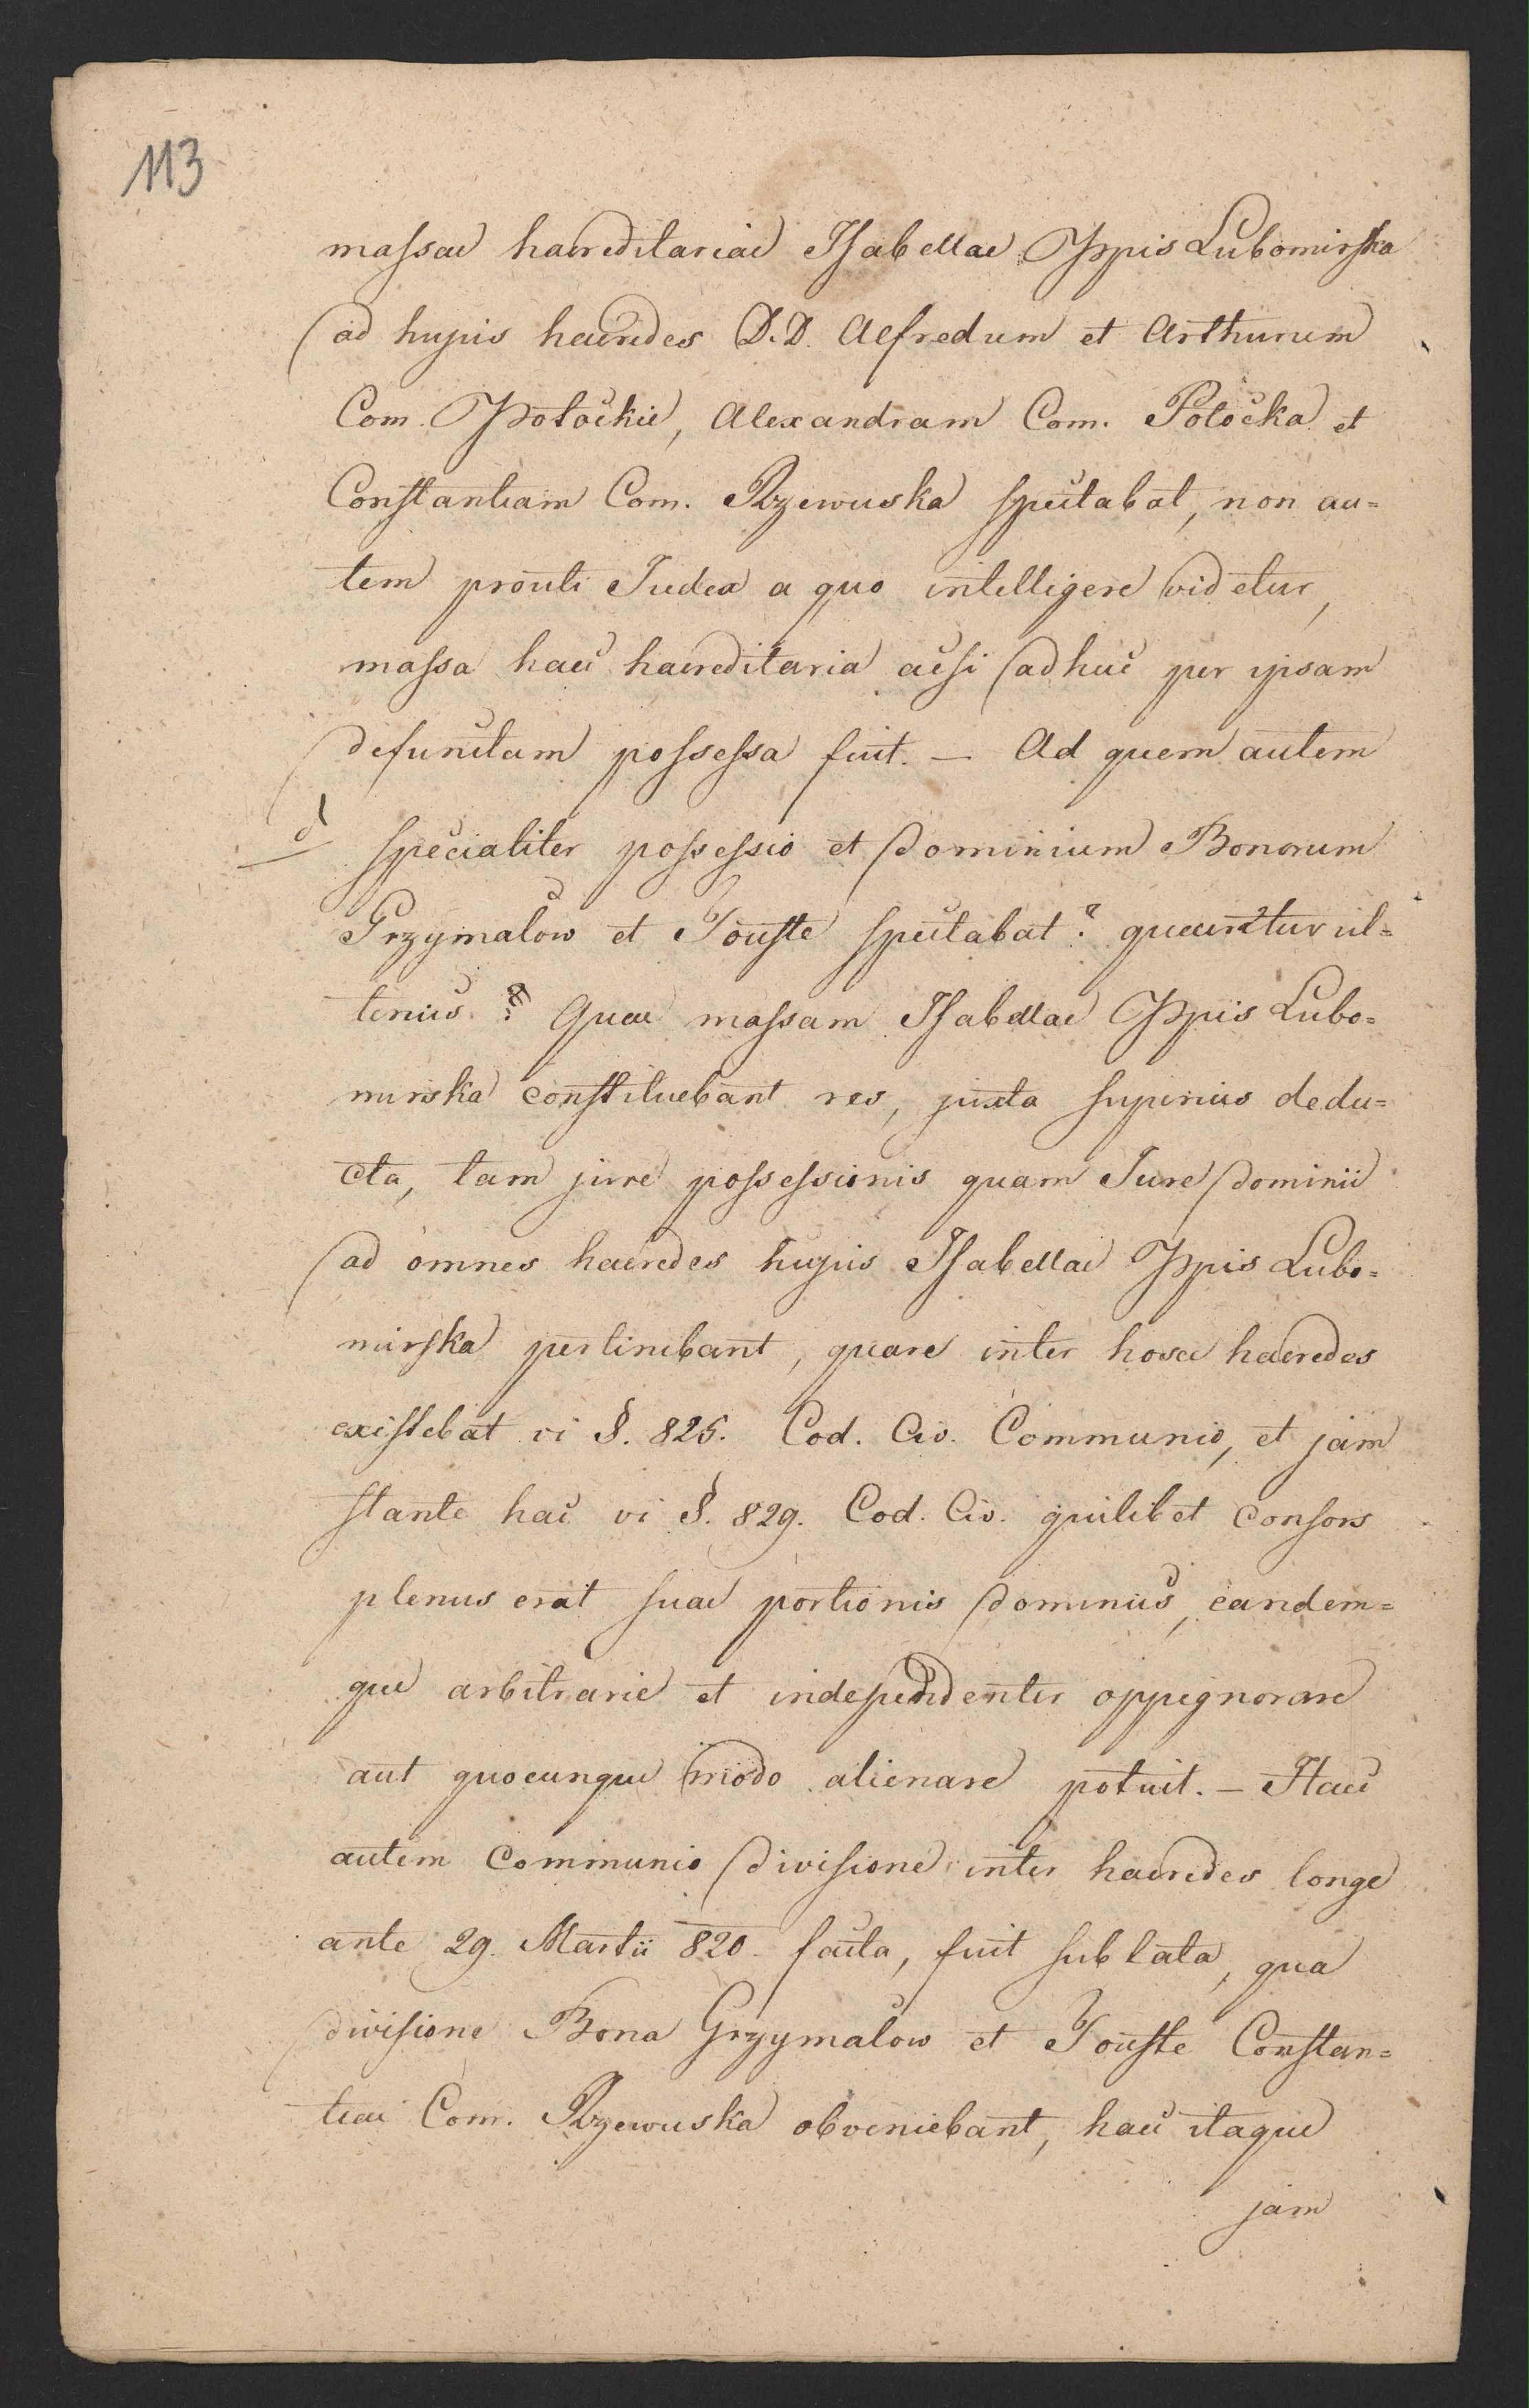 113
massae haereditariae Isabellae Ppis Lubomirska
ad hujus haeredes D.D. Alfredum et Arthurum
Com. Potockie, Alexandram Com. Potocka et
Constantiam Com. Rzewuska spectabat, non au=
tem prouti Judex a quo intelligere videtur,
massa haec haereditaria acsi adhuc per ipsam
defunctam possessa fuit. — Ad quem autem
d
specialiter possessio et dominium Bonorum
Grzymalow et Touste spectabat? quaeritur ul=
terius? Quae massam Isabellae Ppis Lubo=
mirska constituebant res, juxta superius dedu=
cta, tam jure possessionis quam Jure dominii
ad omnes haeredes hujus Isabellae Ppis Lubo=
mirska pertinebant, quare inter hosce haeredes
existebat vi §. 825. Cod. Civ. Communio, et jam
stante hac vi §. 829. Cod. Civ. quilibet consors
plenus erat suae portionis dominus, eandem=
que arbitrarie et independenter oppignorare
aut quocunque modo alienare potuit. — Haec
autem communio divisione inter haeredes longe
ante 29. Martii 820 facta, fuit sublata, qua
divisione Bona Grzymalow et Touste Constan=
tiae Com. Rzewuska obveniebant, haec itaque
jam